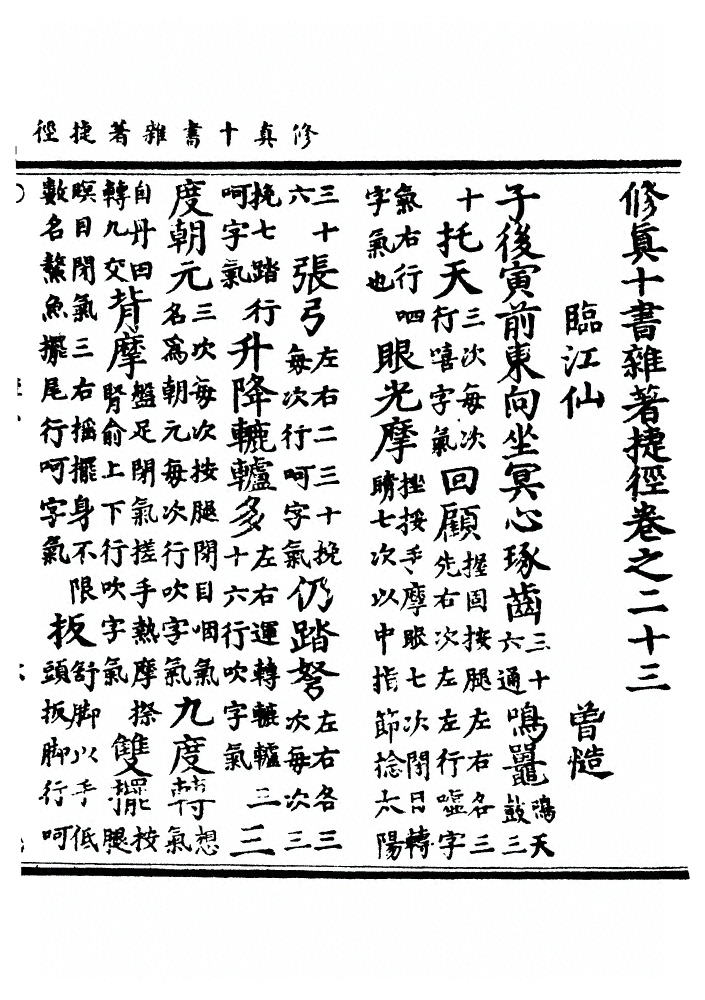 修真十書雜著捷徑
修眞十書雜著捷徑卷之二十三
臨江仙 曾慥
子後寅前東向坐冥心琢齒三十六通鳴鼉鳴天鼓三
十托天三次每次行嘻字氣回顧握固按腿左右各三先右次左左行噓字
氣右行呬字氣也眼光摩挫挼手摩眼七次閉目轉睛七次以中指節捻太陽
三十六張弓左右二三十挽每次行呵字氣仍踏弩左右各三次每次三
挽七踏行呵字氣升降轆轤多左右運轉轆轤三十六行吹字氣三
度朝元三次每次按腿閉目咽氣名爲朝元每次行吹字氣九度轉想氣
自丹田轉九交背摩盤足閉氣搓手熱摩擦腎俞上下行吹字氣雙擺按腿
瞑目閉氣三右搖擺身不限數名鰲魚擺尾行呵字氣扳舒脚以手低頭扳脚行呵